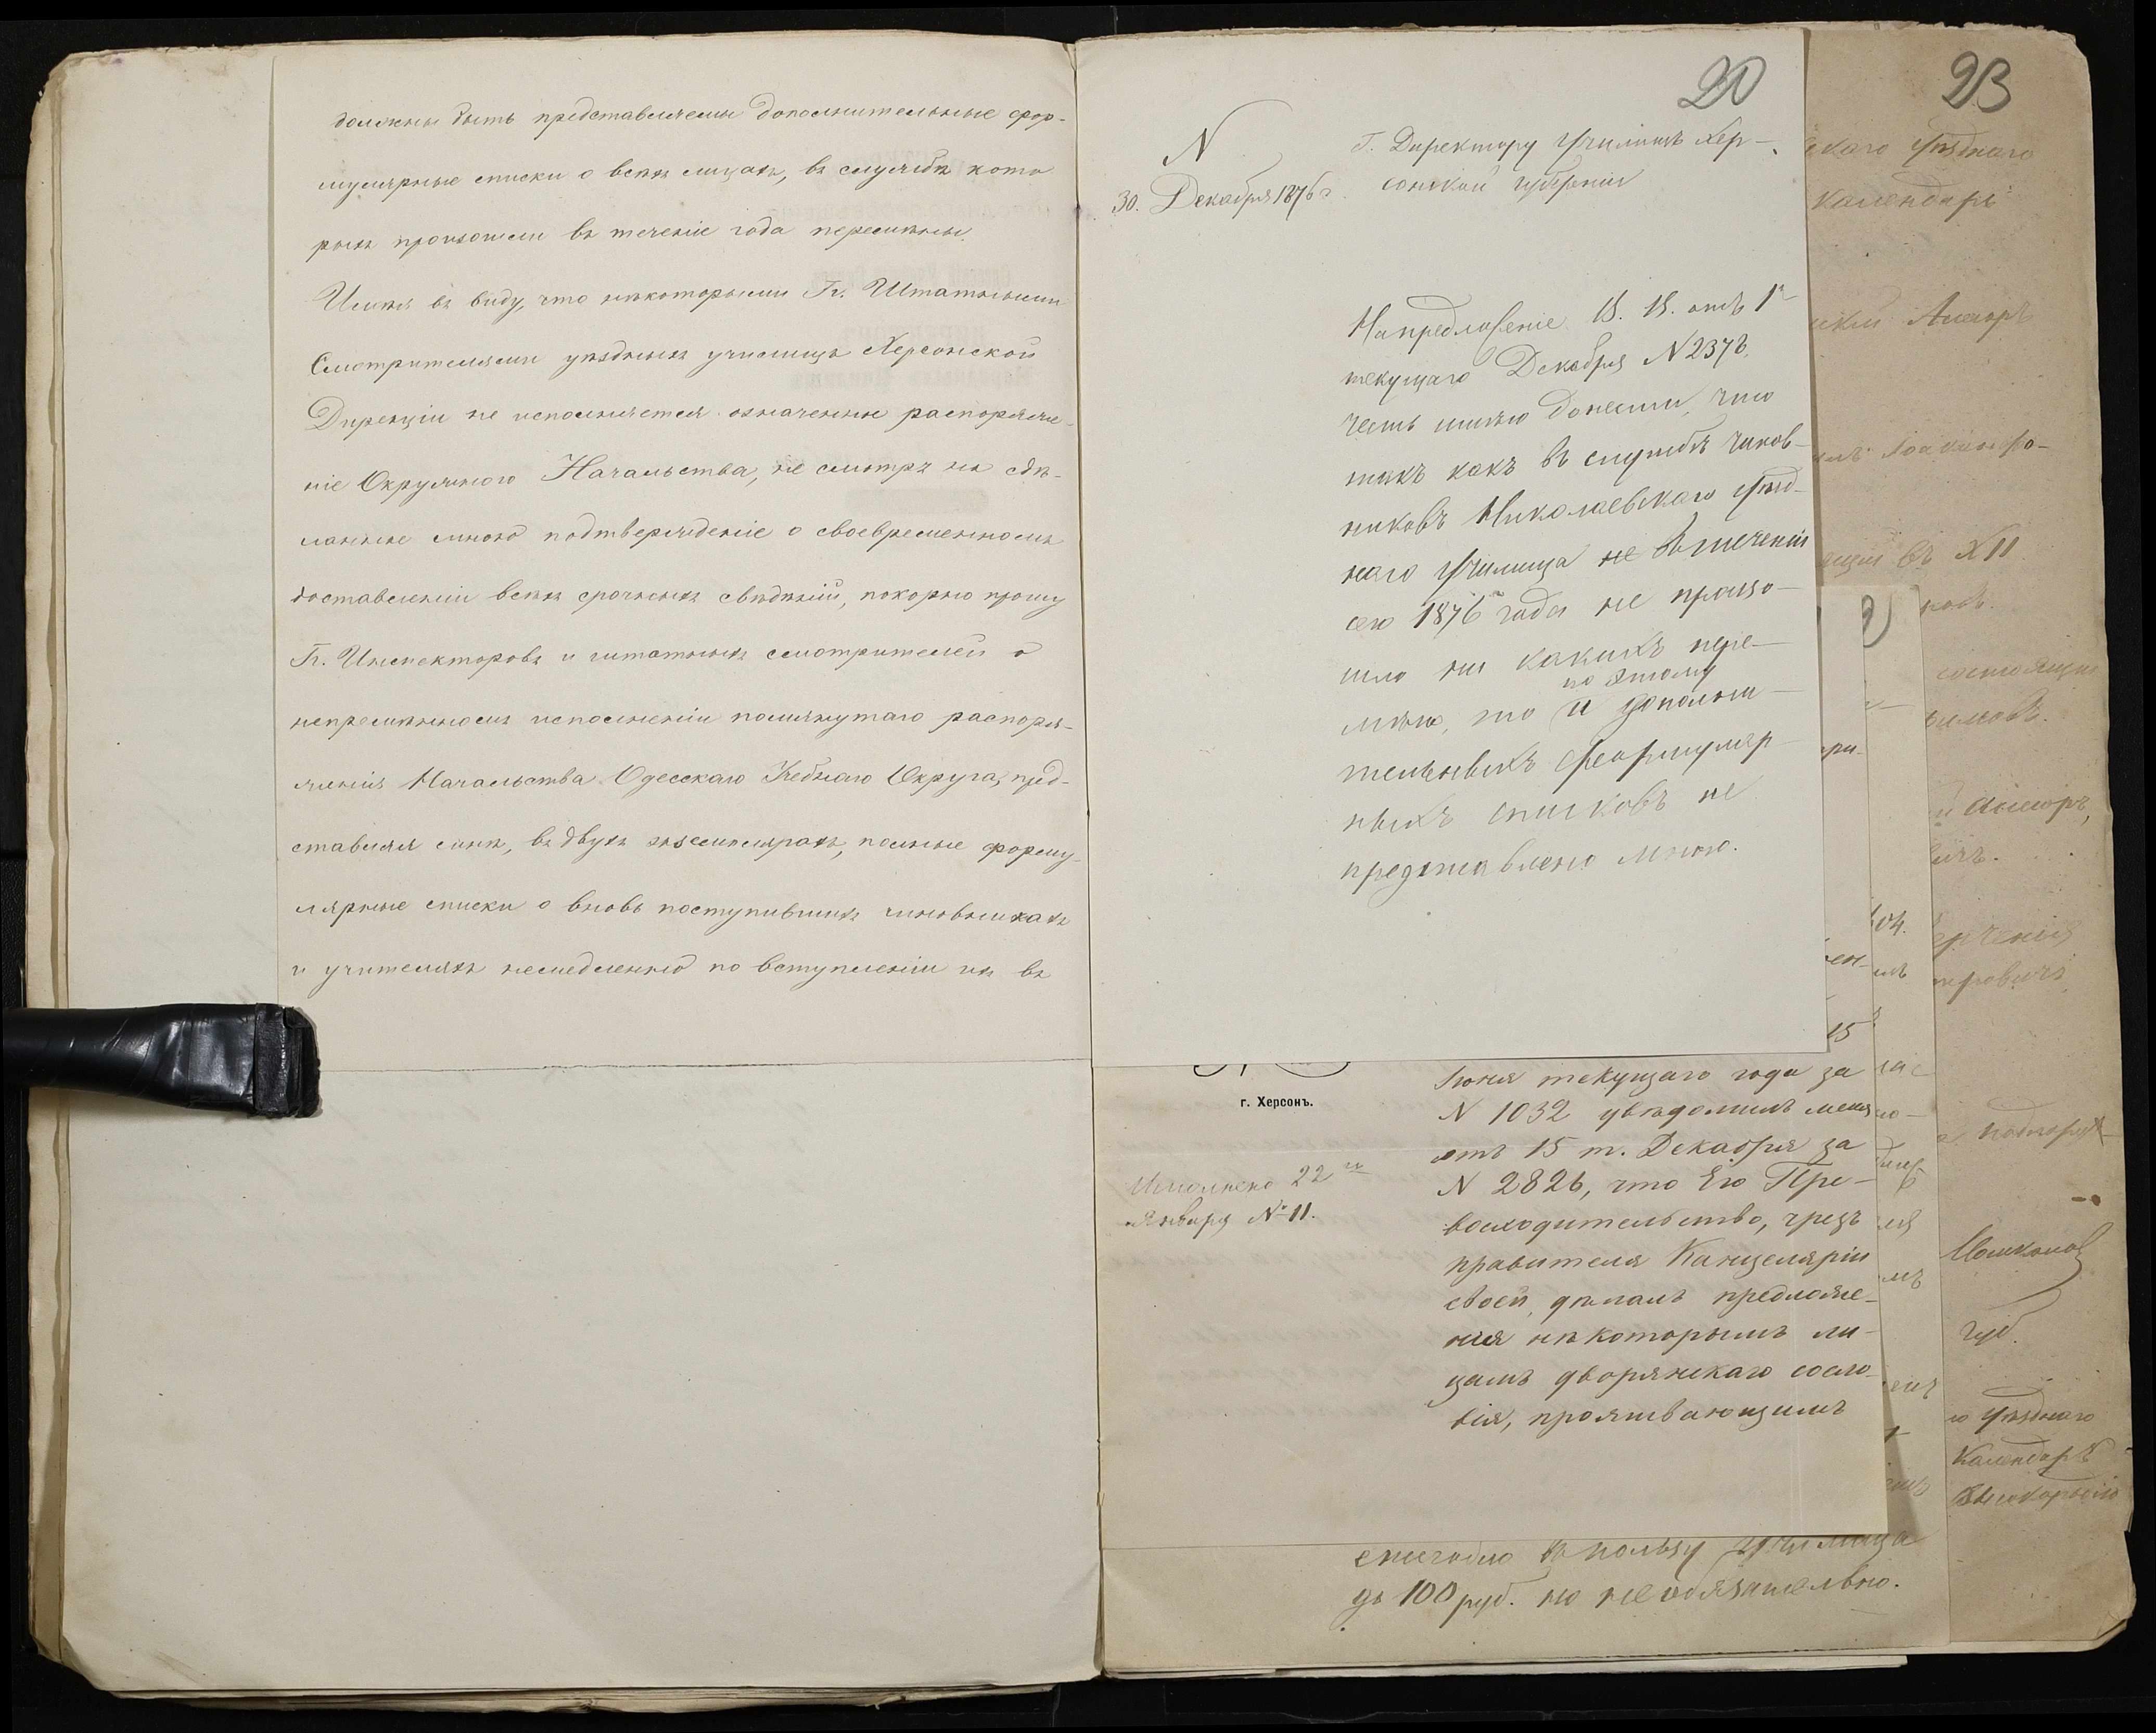 должны быть представляемы дополнительные фор-
мулярные списки о всѣхъ лицахъ, въ службѣ кото
рыхъ произошли въ теченіе года перемѣны.
Имѣя въ виду, что нѣкоторыми Гг. Штатными
Смотрителями уѣздныхъ училищъ Херсонской
Дирекціи не исполняется означенное распоряже-
ніе Окружного Начальства, не смотря на сдѣ-
ланное мною подтвержденіе о своевременномъ
доставленіи всѣхъ срочныхъ свѣдѣній, покорно прошу
Гг. Инспекторовъ и штатныхъ смотрителей о
непремѣнномъ исполненіи помянутаго распоря-
женія Начальства Одесскаго Учебнаго Округа, пред-
ставляя мнѣ, въ двухъ экземплярахъ, полные форму-
лярные списки о вновь поступившихъ чиновникахъ
и учителяхъ немедленно по вступленіи ихъ въ
20
N
30. Декабря 1876 г.
Г. Директору Училищъ Хер-
сонской губерніи
На предложеніе В. В. отъ 1го
текущаго Декабря N 2378
честь имѣю донести, что
такъ какъ въ службѣ чинов-
никовъ Николаевскаго Уѣзд-
наго Училища не въ теченіи
сего 1876 года не произо-
шло ни какихъ пере-
по этому
мѣнъ, то и дополни-
тельныхъ формуляр-
ныхъ списковъ не
представлено мною.
г. Херсонъ.
Исполнено 22го
Января № 11.
15
Іюня текущаго года за
N 1032 увѣдомилъ меня
отъ 15 т. Декабря за
N 2826, что Его Пре-
восходительство, чрезъ
правителя Канцеляріи
своей, дѣлалъ предложе-
нія нѣкоторымъ ли-
цамъ дворянскаго сосло-
вія, проживающимъ
ежегодно въ пользу училища
до 100 руб. но не обязательно.
23
скаго Уѣзднаго
Календарь
въ XII
состоящія
Календарь